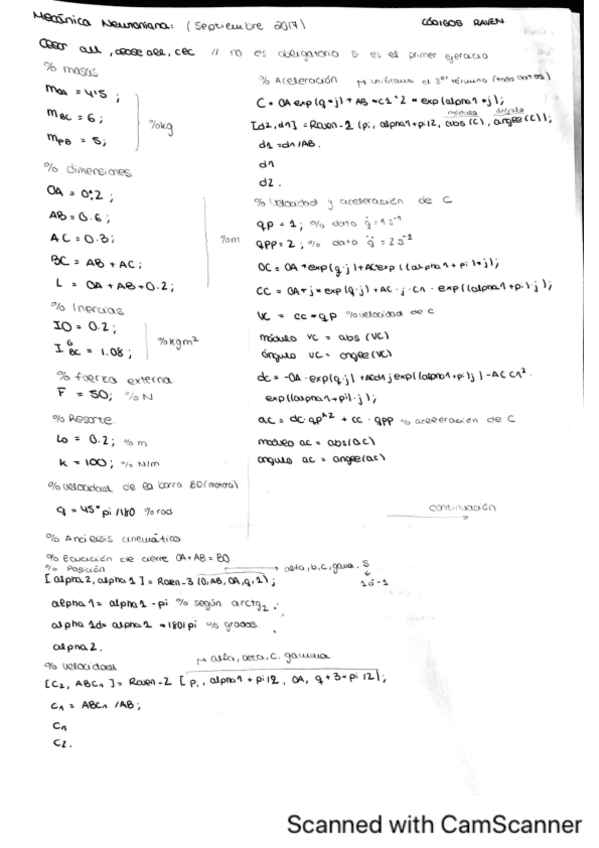 Mecánica Newtoniana: (Septiembre 2017)
CÓDIGOS RAVEN
clear all, close all, clc // no es obligatorio si es el primer ejercicio
% masas
mOA = 4'5;
mBC = 6; %kg
mPB = 5;
% dimensiones
OA = 0.2;
AB = 0.6;
AC = 0.3; %m
BC = AB + AC;
L = OA + AB + 0.2;
% Inercias
IO = 0.2;
I G BC = 1.08; %kgm²
% fuerza externa
F = 50; % N
% Resorte
Lo = 0.2; % m
k = 100; % N/m
% velocidad de la barra BO (motora)
q = 45* pi/180 % rad
% Análisis cinemático
% Ecuación de cierre OA + AB = BO
% Posición → alfa, b, c, gama, S
[alpha2, alpha1] = Raven-3 (0, AB, OA, q, 1); 1 ó -1
alpha1 = alpha1 - pi % según arctg2.
alpha1d = alpha1 * 180/pi % grados
alpha2.
% velocidad → alfa, beta, C, gamma
[C2, ABC1] = Raven-2 [pi, alpha1 + pi/2, OA, q + 3*pi/2];
C1 = ABC1 / AB;
C1
C2.
% Aceleración → unificamos el 3er término (todo datos)
C = OA exp(q*j) + AB *C1^2 * exp(alpha1*j);
módulo ángulo
[d2, d1] = Raven-2 (pi, alpha1+pi/2, abs(C), angle(C));
d1 = d1/AB.
d1
d2.
% Velocidad y aceleración de C
qp = 1; % dato q̇ = 1 s⁻¹
qpp = 2; % dato q̈ = 2 s⁻²
OC = OA * exp(q·j) + AC exp((alpha1 + pi)*j);
CC = OA * j * exp(q·j) + AC · j · C1 · exp((alpha1+pi)·j);
VC = CC * qp % velocidad de C
módulo VC = abs (VC)
ángulo VC = angle(VC)
dc = -OA · exp(q·j) + ACd1 j exp((alpha1+pi)j) - AC C1².
exp((alpha1+pi)·j);
ac = dc · qp^2 + cc · qpp % aceleración de C
modulo ac = abs(ac)
angulo ac = angle(ac)
continuación
Scanned with CamScanner